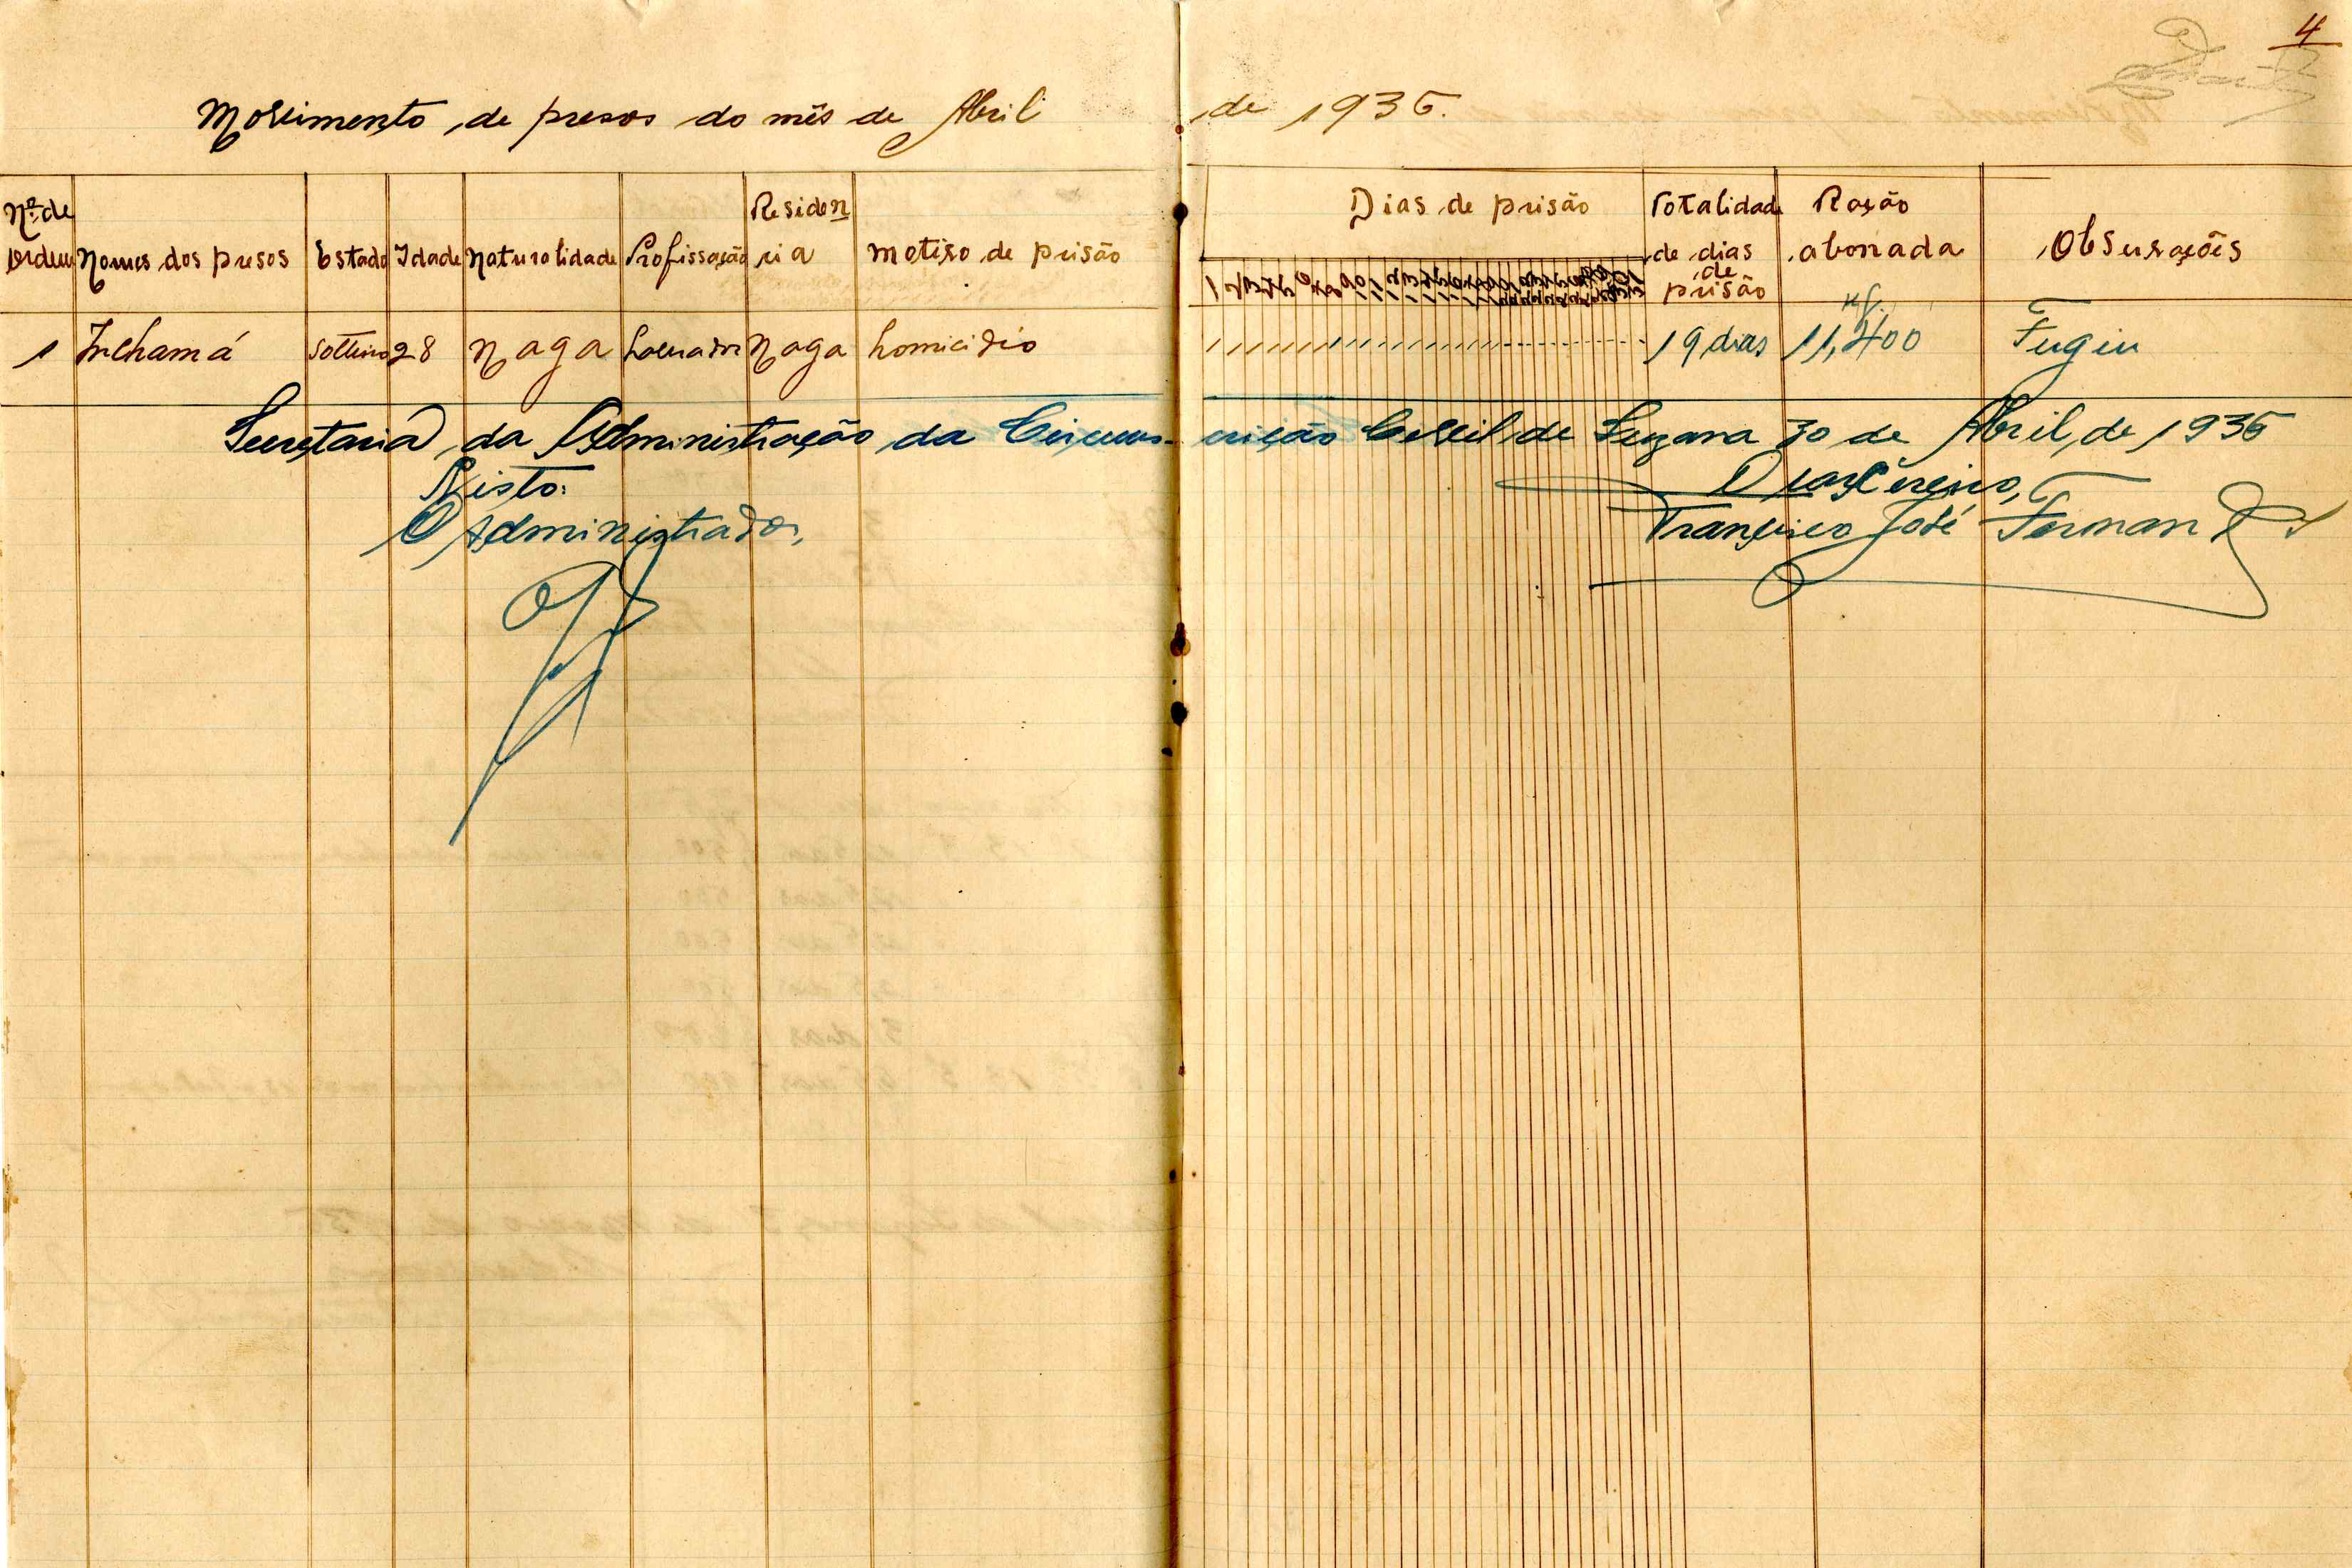 4
Movimento de presos do mês de Abril de 1936.
Nº de ordem Nomes dos presos Estado Idade Naturalidade Profissação Residencia Motivo de prisão Dias de prisão Totalidade de dias de prisão Ração abonada Observações
kg.
1 Inchamá Solteiro 28 Naga Lavrador Naga homicidio 19 dias 11,400 Fugiu
Secretaria da Administração da Circunscrição Civil de Suzana 30 de Abril de 1936
Visto:
O Administrador,
Francisco José Fernandes